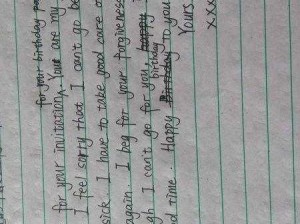 for your birthday
for your invitation. You are my
I feel sorry that I can't go be
sick. I have to take good care o
again. I beg for your forgiveness
gh I can't go for you happy birthday
time. Happy Birthday to you
Yours
xxx